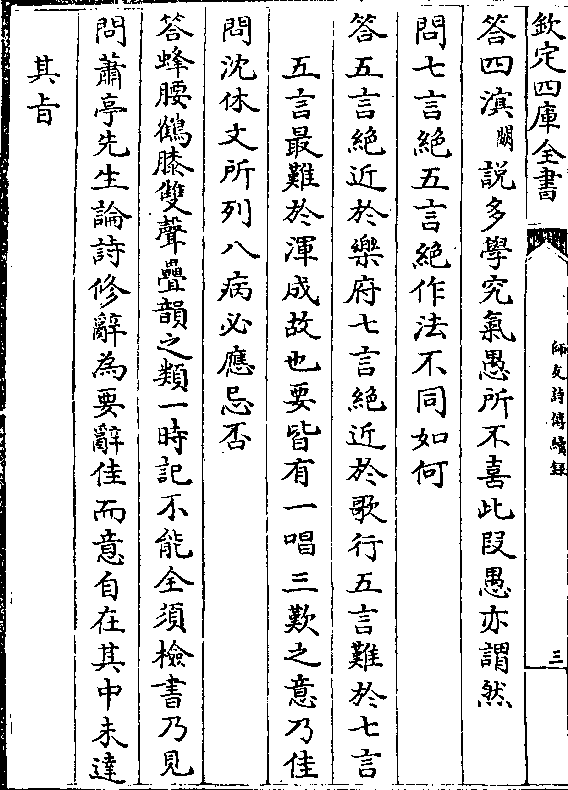 欽定四庫全書
師友詩傳續録
三
答四溟闕說多學究氣愚所不喜此段愚亦謂然
問七言絕五言絕作法不同如何
答五言絕近於樂府七言絕近於歌行五言難於七言
五言最難於渾成故也要皆有一唱三歎之意乃佳
問沈休文所列八病必應忌否
答蜂腰鶴膝雙聲疊韻之類一時記不能全須檢書乃見
問蕭亭先生論詩修辭為要辭佳而意自在其中未達
其旨